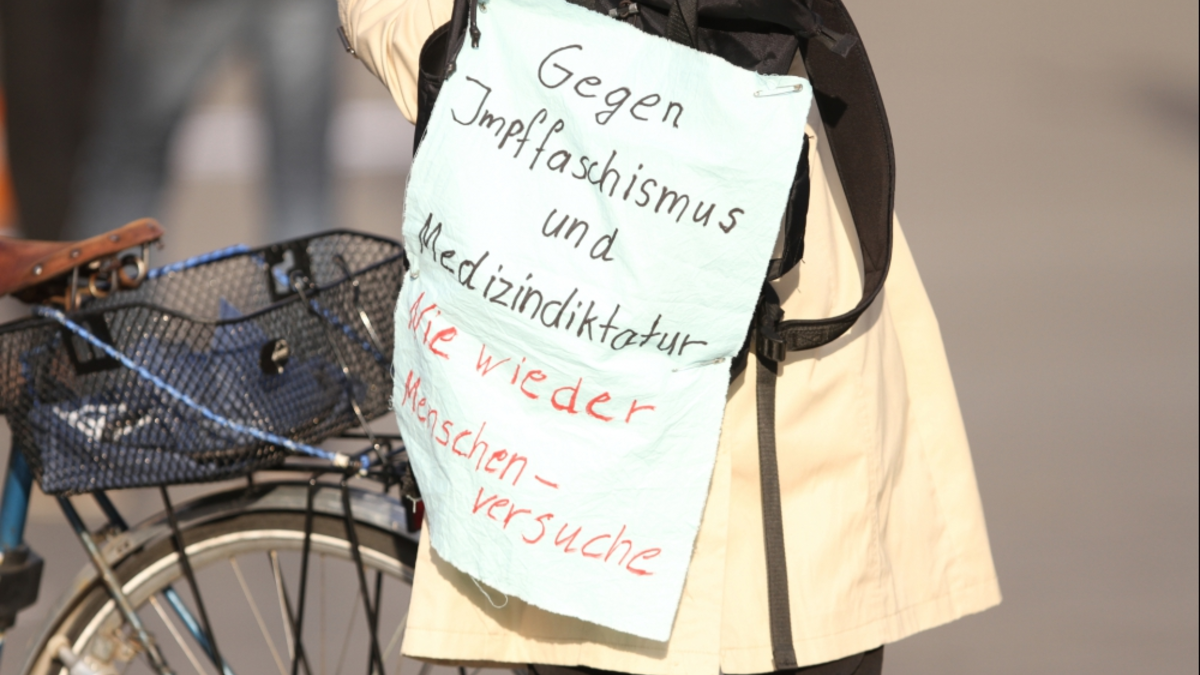 Gegen
Impffaschismus
und
Medizindiktatur
Nie wieder
Menschen-
versuche